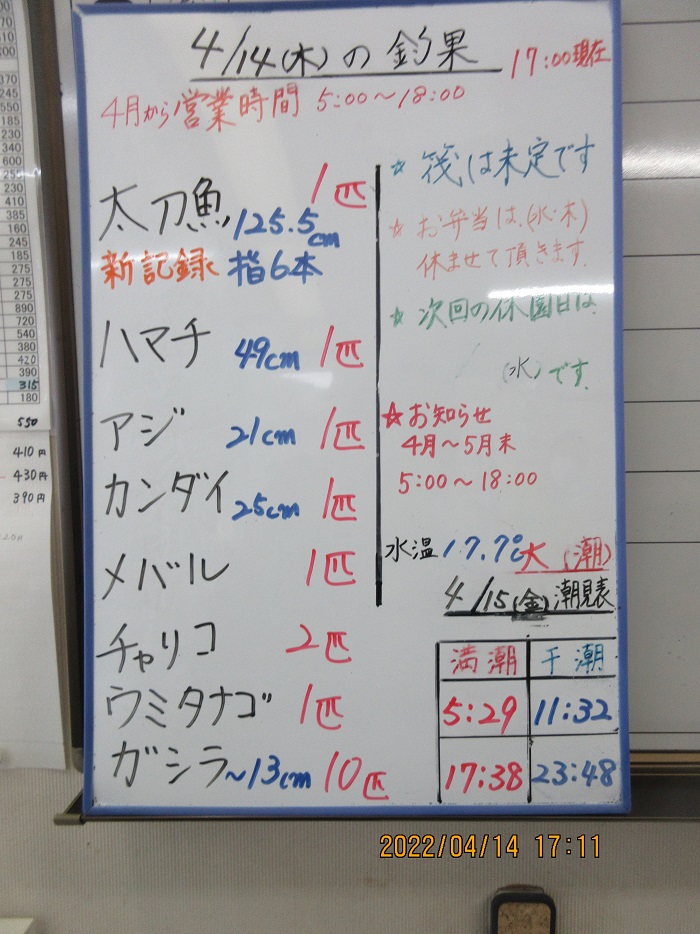 4/14(木)の釣果
17:00現在
4月から営業時間 5:00〜18:00
太刀魚 125.5cm 1匹
新記録 指6本
ハマチ 49cm 1匹
アジ 21cm 1匹
カンダイ 25cm 1匹
メバル 1匹
チャリコ 2匹
ウミタナゴ 1匹
ガシラ 〜13cm 10匹
☆ 筏は未定です
☆ お弁当は(水・木)
休ませて頂きます
☆ 次回の休園日は
(水)です
☆お知らせ
4月〜5月末
5:00〜18:00
水温 17.7℃ 大(潮)
4/15(金)潮見表
満潮 干潮
5:29 11:32
17:38 23:48
2022/04/14 17:11
370
245
550
185
310
340
600
250
230
410
385
160
245
285
275
275
290
720
540
380
420
390
315
180
550
410円
430円
390円